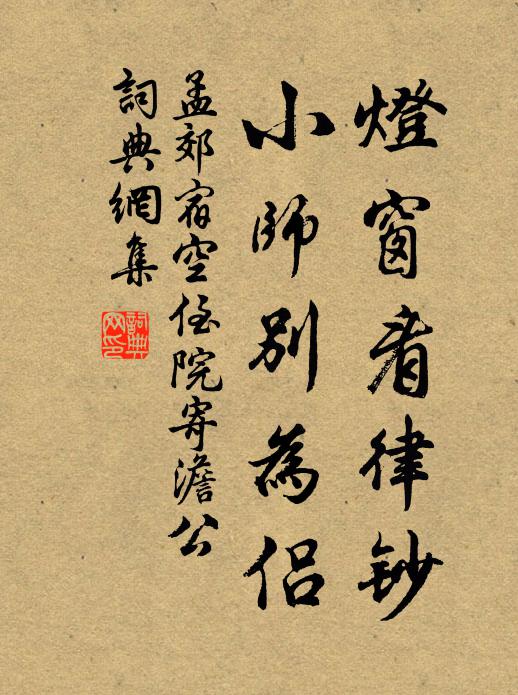 燈窗看律鈔
小師別為侶
孟郊宿空侄院寄澹公
詞典網集
詞典網印